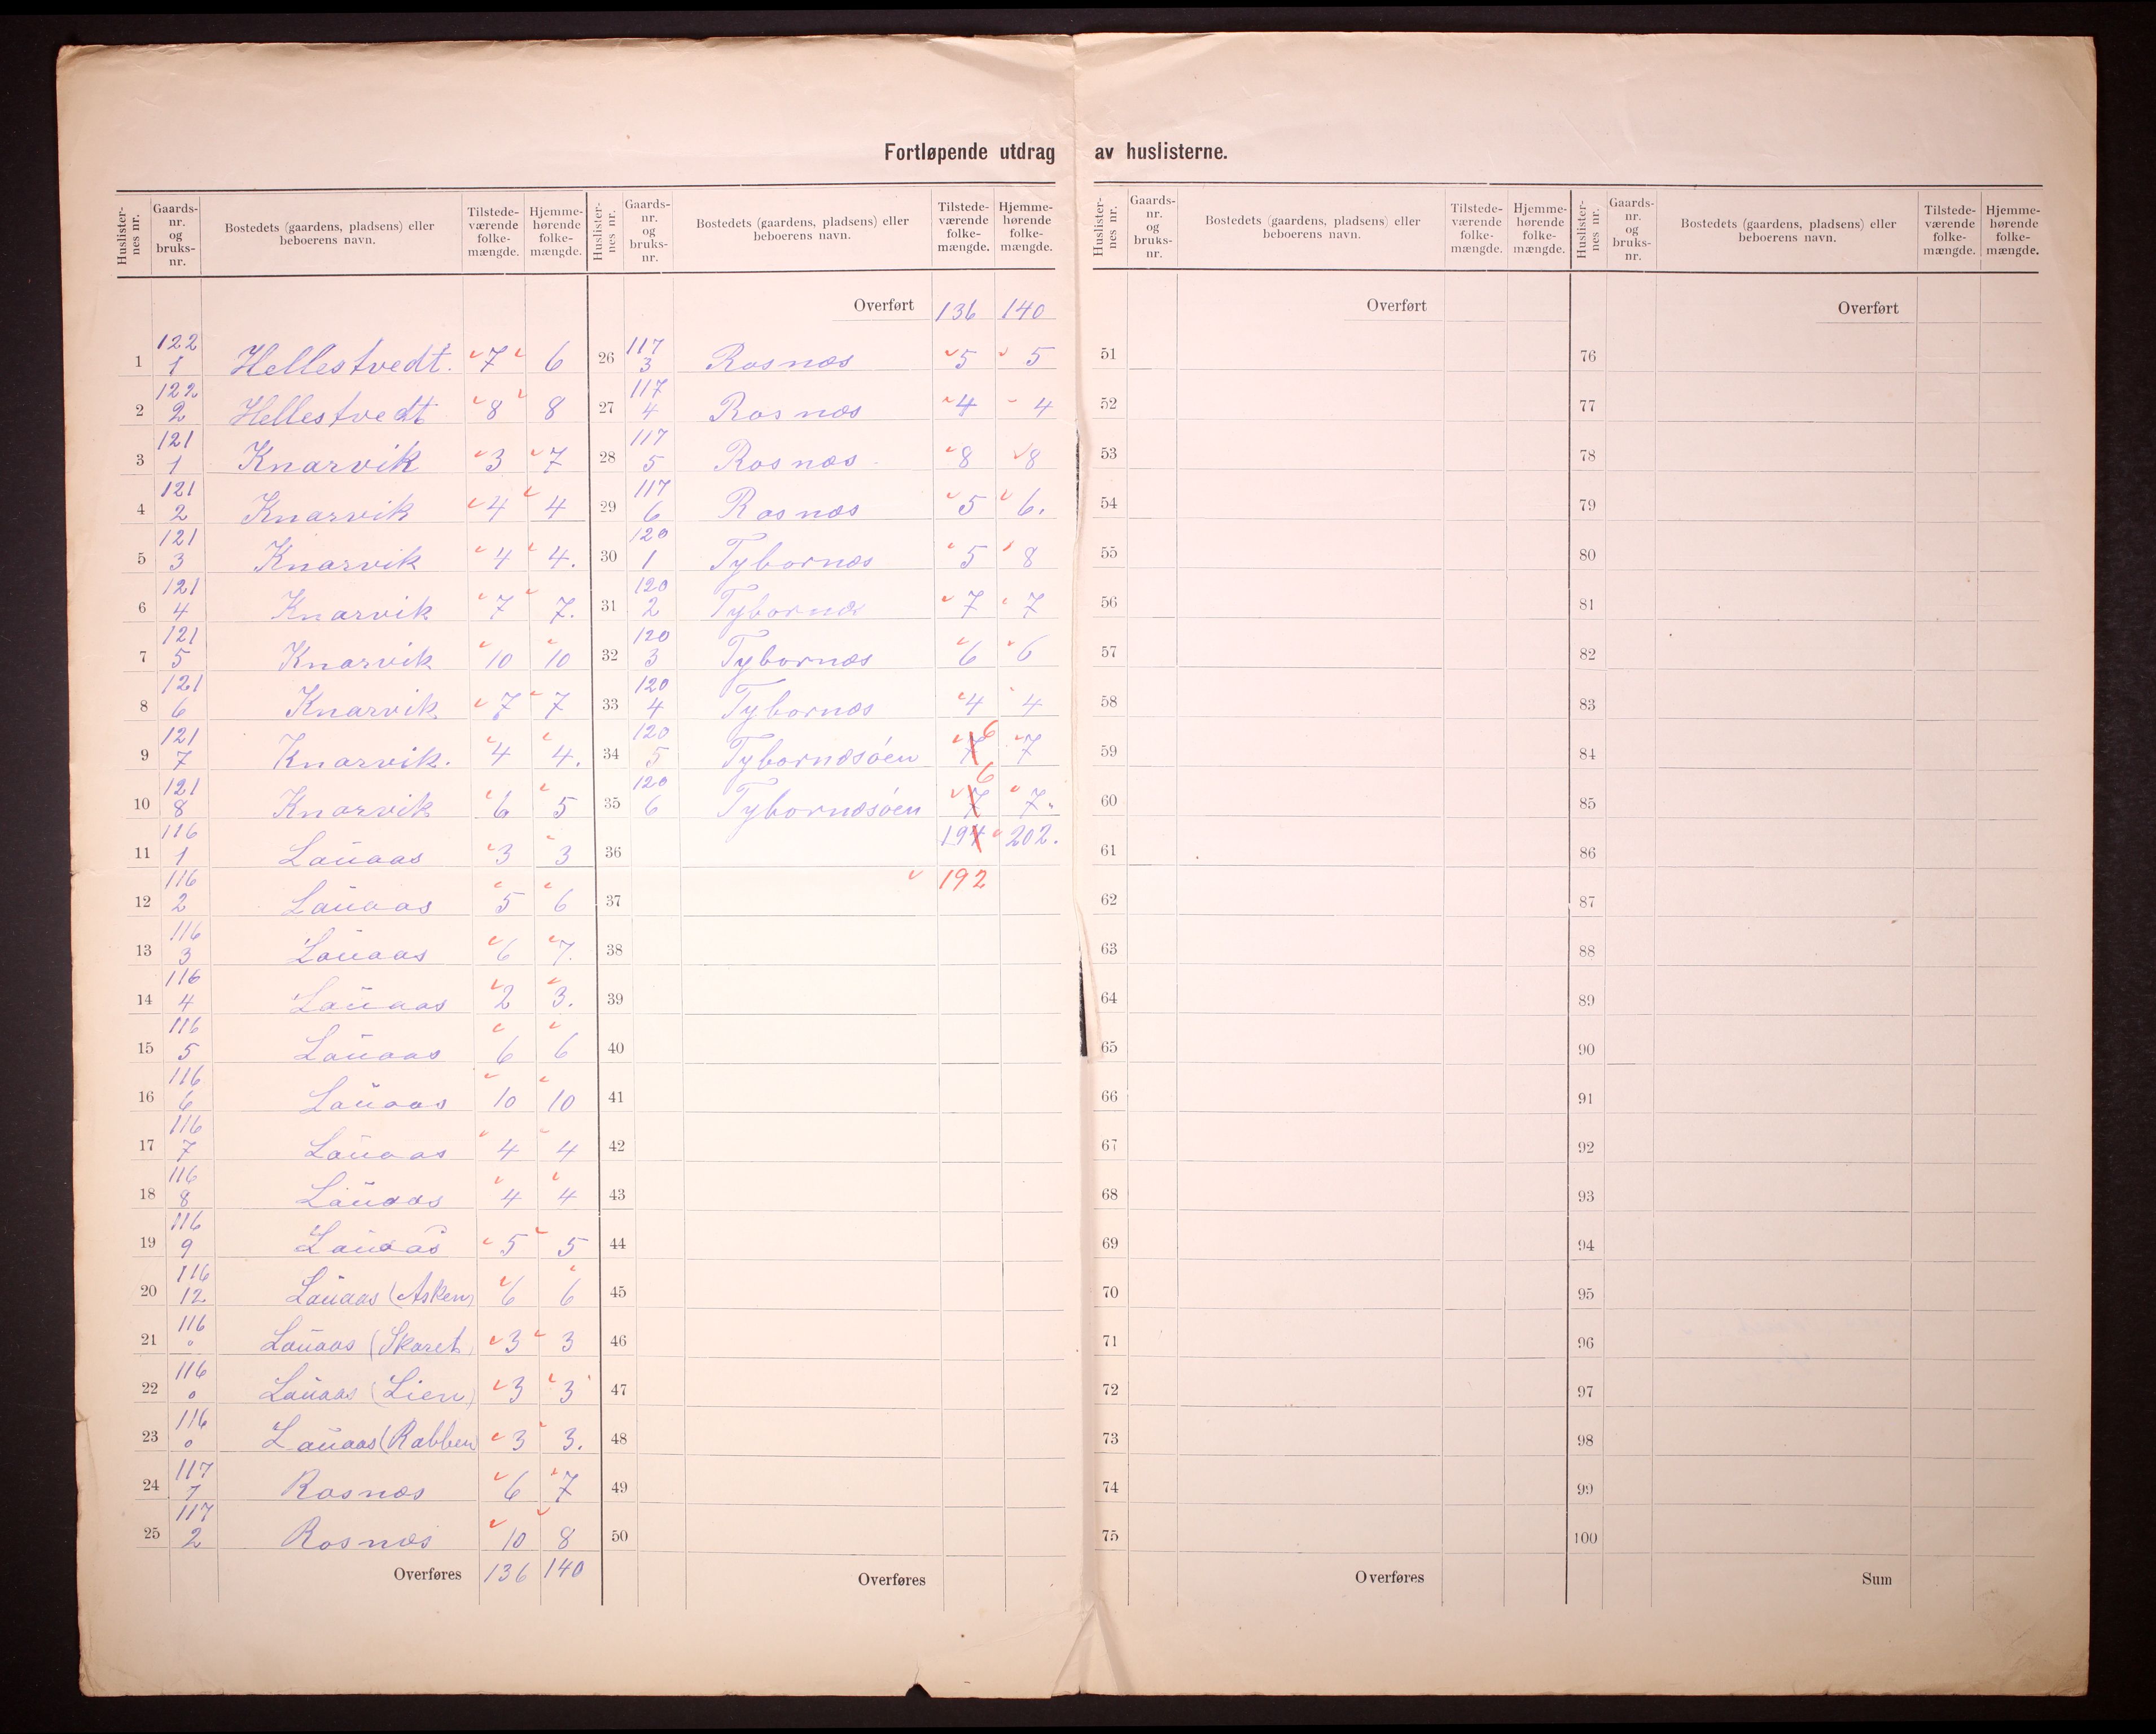 Fortløpende utdrag av huslisterne.
Huslister-nes nr. Gaards-nr. og bruks-nr. Bostedets (gaardens, pladsens) eller beboerens navn. Tilstede-værende folke-mængde. Hjemme-hørende folke-mængde.
1 122 1 Hellestvedt. 7 6
2 122 2 Hellestvedt 8 8
3 121 1 Knarvik 3 7
4 121 2 Knarvik 4 4
5 121 3 Knarvik 4 4.
6 121 4 Knarvik 7 7.
7 121 5 Knarvik 10 10
8 121 6 Knarvik 7 7
9 121 7 Knarvik. 4 4.
10 121 8 Knarvik 6 5
11 116 1 Lauaas 3 3
12 116 2 Lauaas 5 6
13 116 3 Lauaas 6 7.
14 116 4 Lauaas 2 3.
15 116 5 Lauaas 6 6
16 116 6 Lauaas 10 10
17 116 7 Lauaas 4 4
18 116 8 Lauaas 4 4
19 116 9 Lauaas 5 5
20 116 12 Lauaas (Asken) 6 6
21 116 0 Lauaas (Skaret) 3 3
22 116 0 Lauaas (Lien) 3 3
23 116 0 Lauaas (Rabben) 3 3.
24 117 1 Rosnæs 6 7
25 117 2 Rosnæs 10 8
Overføres 136 140
Huslister-nes nr. Gaards-nr. og bruks-nr. Bostedets (gaardens, pladsens) eller beboerens navn. Tilstede-værende folke-mængde. Hjemme-hørende folke-mængde.
Overført 136 140
26 117 3 Rosnæs 5 5
27 117 4 Rosnæs 4 4
28 117 5 Rosnæs 8 8
29 117 6 Rosnæs 5 6.
30 120 1 Tybornæs 5 8
31 120 2 Tybornæ 7 7
32 120 3 Tybornæs 6 6
33 120 4 Tybornæs 4 4
34 120 5 Tybornæsøen 7 6 7
35 120 6 Tybornæsøen 7 6 7.
36 194 202.
37 192
38
39
40
41
42
43
44
45
46
47
48
49
50
Overføres
Huslister-nes nr. Gaards-nr. og bruks-nr. Bostedets (gaardens, pladsens) eller beboerens navn. Tilstede-værende folke-mængde. Hjemme-hørende folke-mængde.
Overført
51
52
53
54
55
56
57
58
59
60
61
62
63
64
65
66
67
68
69
70
71
72
73
74
75
Overføres
Huslister-nes nr. Gaards-nr. og bruks-nr. Bostedets (gaardens, pladsens) eller beboerens navn. Tilstede-værende folke-mængde. Hjemme-hørende folke-mængde.
Overført
76
77
78
79
80
81
82
83
84
85
86
87
88
89
90
91
92
93
94
95
96
97
98
99
100
Sum